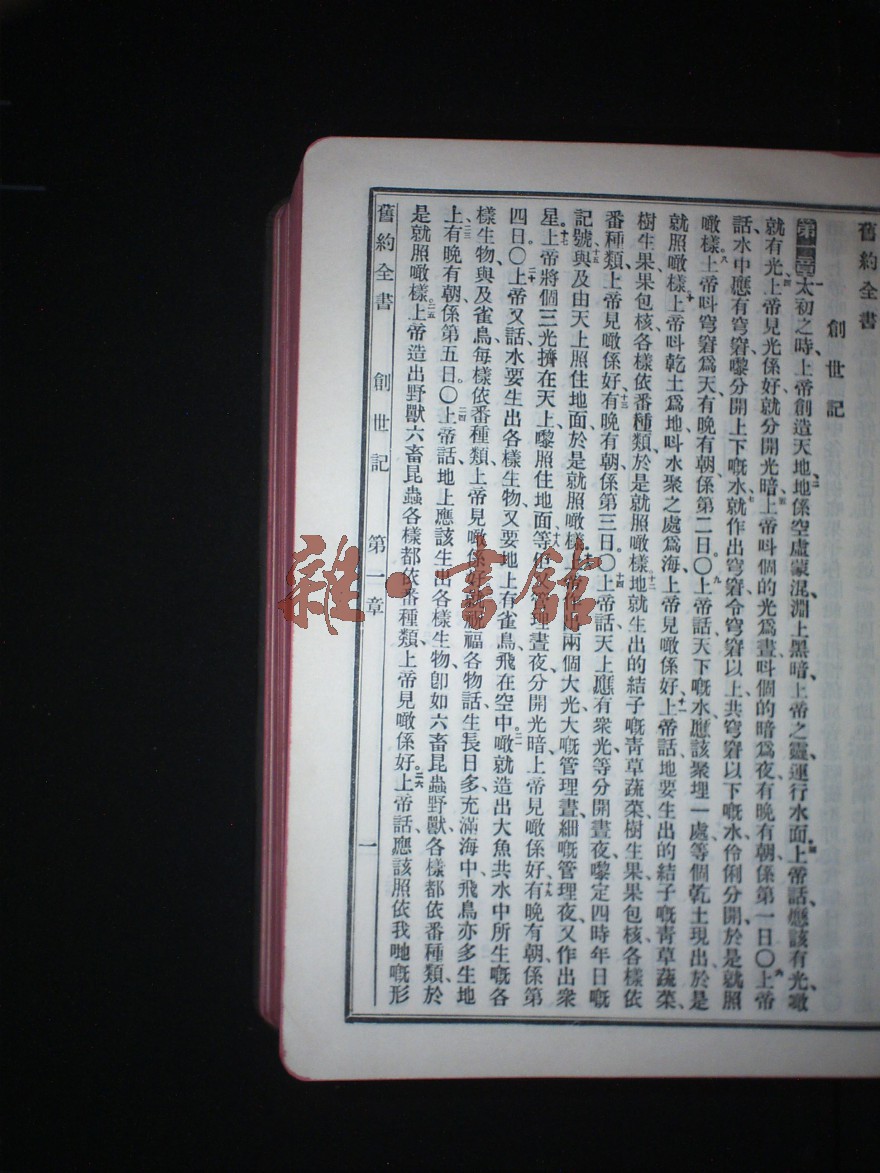 舊約全書
創世記
第一章太初之時、上帝創造天地、地係空虛蒙混、淵上黑暗、上帝之靈運行水面、上帝話、應該有光、噉
就有光、上帝見光係好、就分開光暗、上帝呌個的光爲晝、呌個的暗爲夜、有晚有朝、係第一日。〇上帝
話、水中應有穹窘、嚟分開上下嘅水、就作出穹窘、令穹窘以上、共穹窘以下嘅水伶俐分開、於是就照
噉樣。上帝呌穹窘爲天、有晚有朝、係第二日。〇上帝話、天下嘅水、應該聚埋一處、等個乾土現出、於是
就照噉樣、上帝呌乾土爲地、呌水聚之處爲海、上帝見噉係好、上帝話、地要生出的結子嘅靑草蔬菜、
樹生果、果包核、各樣依番種類、於是就照噉樣、地就生出的結子嘅靑草蔬菜、樹生果、果包核、各樣依
番種類、上帝見噉係好、有晚有朝、係第三日。〇上帝話、天上應有衆光、等分開晝夜、嚟定四時年日嘅
記號、與及由天上照住地面、於是就照噉樣、上帝 兩個大光、大嘅管理晝、細嘅管理夜、又作出衆
星、上帝將個三光擠在天上、嚟照住地面、等 又 理晝夜、分開光暗、上帝見噉係好、有晚有朝、係第
四日。〇上帝又話、水要生出各樣生物、又要地上有雀鳥飛在空中、噉就造出大魚、共水中所生嘅各
樣生物、與及雀鳥、每樣依番種類、上帝見噉係好、就 福各物、話、生長日多、充滿海中、飛鳥亦多生地
上、有晚有朝、係第五日。〇上帝話、地上應該生出各樣生物、卽如六畜昆蟲野獸、各樣都依番種類、於
是就照噉樣。上帝造出野獸六畜昆蟲、各樣都依番種類、上帝見噉係好。上帝話、應該照依我哋嘅形
舊約全書 創世記 第一章 一
雜·書館